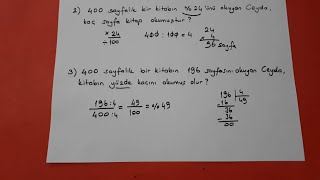 2) 400 sayfalık bir kitabın %24'ünü okuyan Ceyda,
kaç sayfa kitap okumuştur?
× 24
÷ 100
400 : 100 = 4
24
× 4
96 sayfa
3) 400 sayfalık bir kitabın 196 sayfasını okuyan Ceyda,
kitabın yüzde kaçını okumuş olur?
196 : 4 / 400 : 4 = 49 / 100 = % 49
196 | 4
- 16 | 49
36
- 36
00